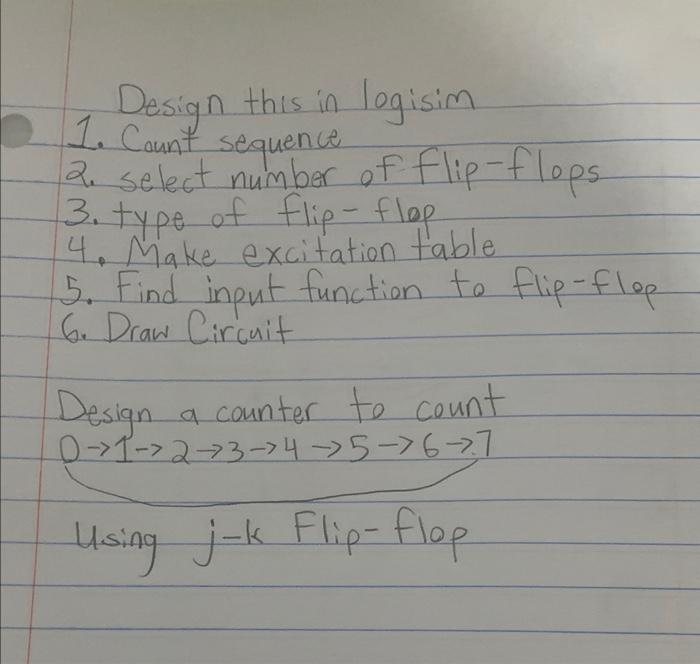 Design this in logisim
1. Count sequence
2. select number of flip-flops
3. type of flip-flop
4. Make excitation table
5. Find input function to flip-flop
6. Draw Circuit
Design a counter to count
0→1→2→3→4→5→6→7
Using j-k Flip-flop